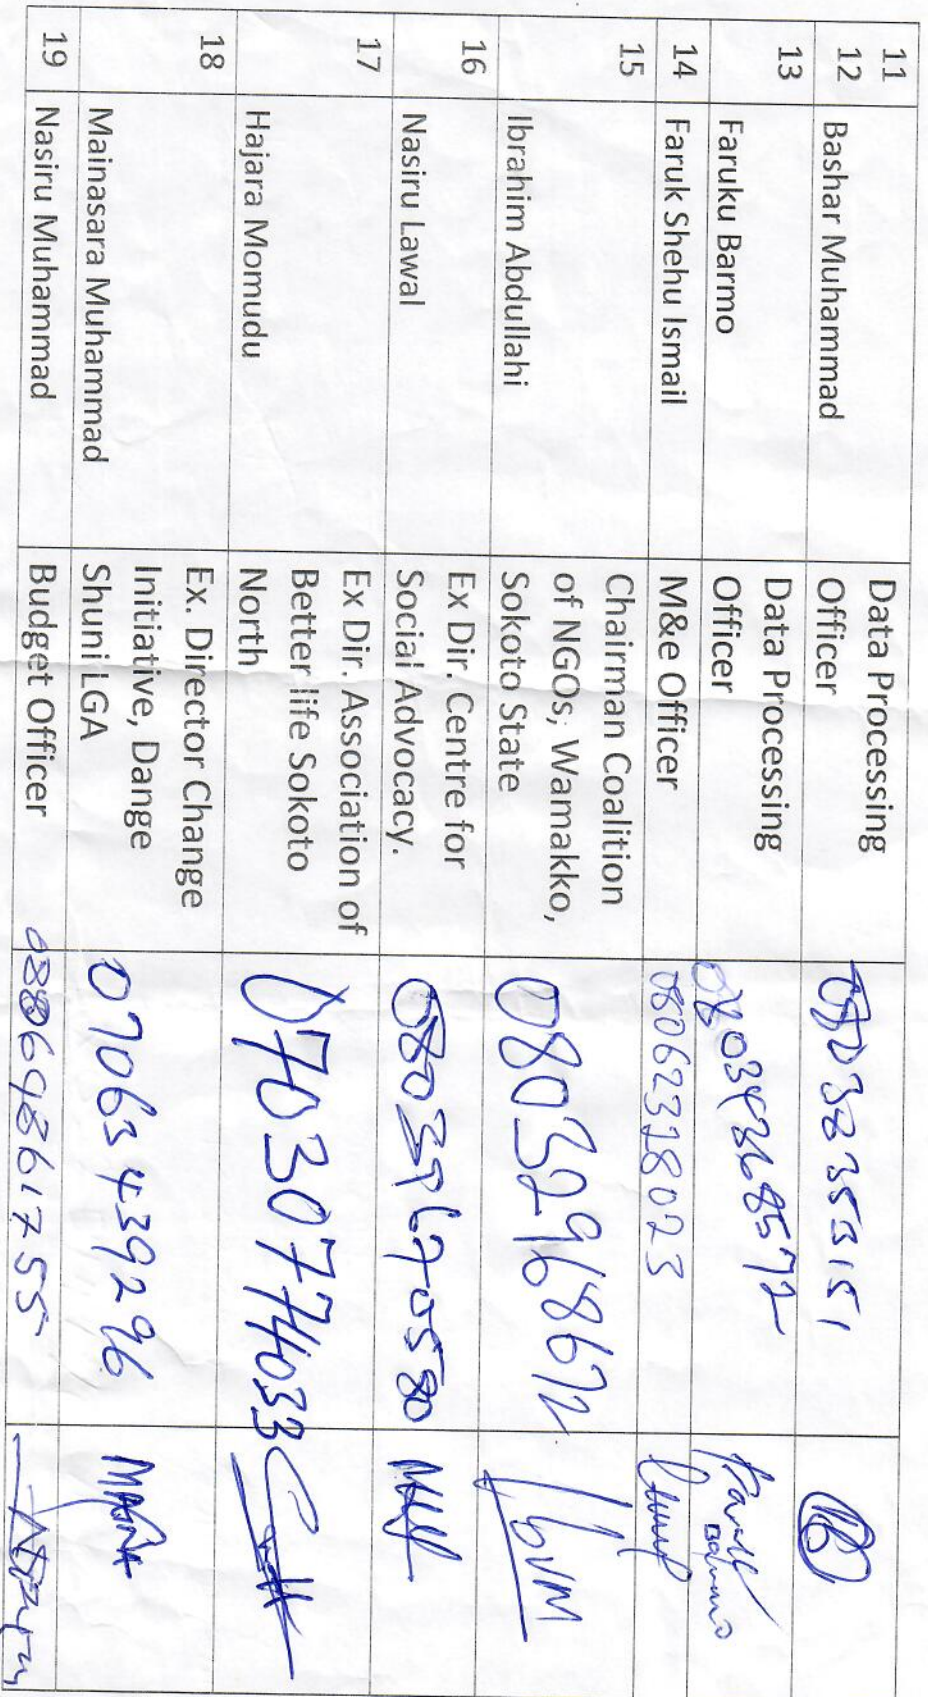 11
12 Bashar Muhammad Data Processing
Officer 08038355151
13
Faruku Barmo Data Processing
Officer
14 Faruk Shehu Ismail M&e Officer 08062328023
15
Ibrahim Abdullahi Chairman Coalition
of NGOs, Wamakko,
Sokoto State 08032968672
16
Nasiru Lawal Ex Dir. Centre for
Social Advocacy. 08039670580
17
Hajara Momudu Ex Dir. Association of
Better life Sokoto
North 07030774033
18
Mainasara Muhammad Ex. Director Change
Initiative, Dange
Shuni LGA 07063439296
19 Nasiru Muhammad Budget Officer